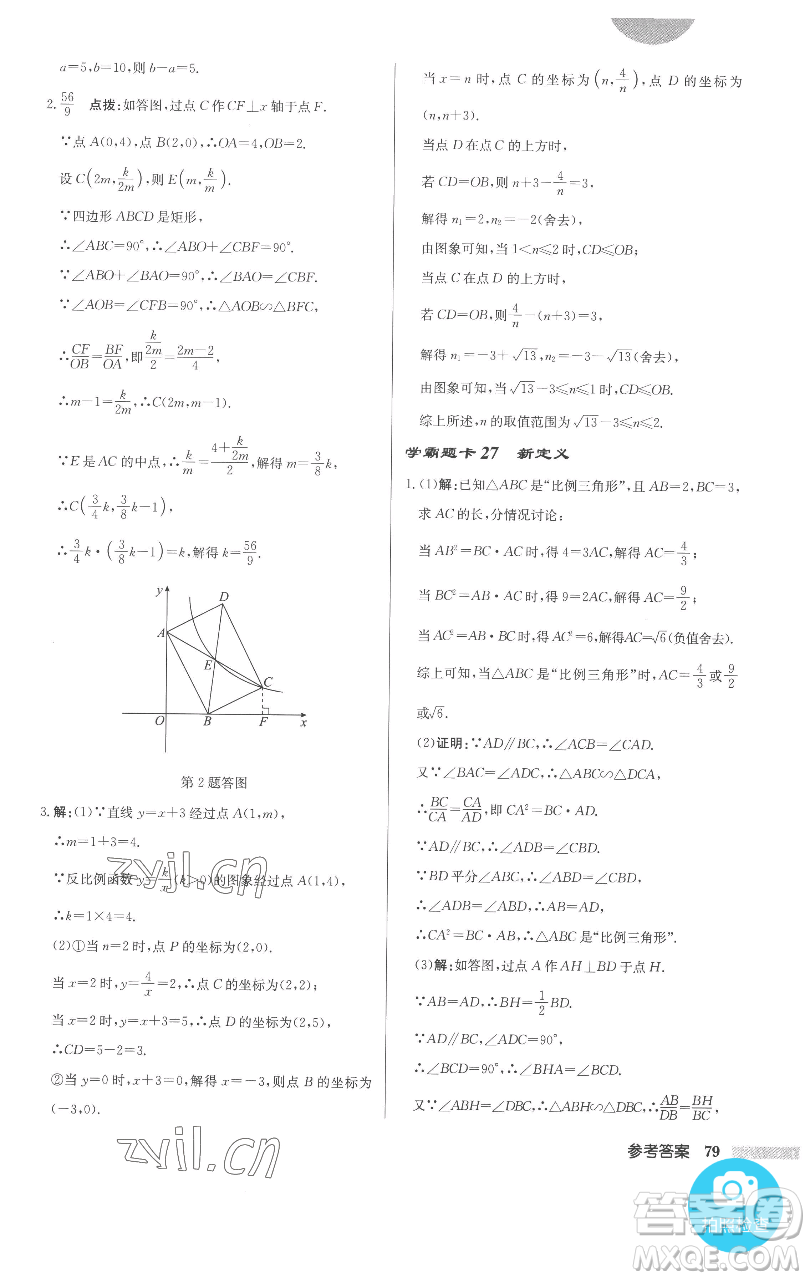 a=5,b=10,则 b-a=5.
2. 56/9 点拨:如答图,过点 C 作 CF⊥x 轴于点 F.
∵点 A(0,4),点 B(2,0),∴OA=4,OB=2.
设 C(2m, k/2m),则 E(m, k/m).
∵四边形 ABCD 是矩形,
∴∠ABC=90°,∴∠ABO+∠CBF=90°.
∵∠ABO+∠BAO=90°,∴∠BAO=∠CBF.
∵∠AOB=∠CFB=90°,∴△AOB∽△BFC,
∴CF/OB=BF/OA,即 (k/2m)/2=(2m-2)/4,
∴m-1=k/2m,∴C(2m,m-1).
∵E 是 AC 的中点,∴k/m=(4+k/2m)/2,解得 m=3/8 k,
∴C(3/4 k, 3/8 k-1),
∴3/4 k·(3/8 k-1)=k,解得 k=56/9.
y
D
A
E
C
O
B
F
x
第 2 题答图
3. 解:(1)∵直线 y=x+3 经过点 A(1,m),
∴m=1+3=4.
∵反比例函数 y=k/x(k>0)的图象经过点 A(1,4),
∴k=1×4=4.
(2)①当 n=2 时,点 P 的坐标为(2,0);
当 x=2 时,y=4/x=2,∴点 C 的坐标为(2,2);
当 x=2 时,y=x+3=5,∴点 D 的坐标为(2,5),
∴CD=5-2=3.
②当 y=0 时,x+3=0,解得 x=-3,则点 B 的坐标为
(-3,0).
当 x=n 时,点 C 的坐标为(n, 4/n),点 D 的坐标为
(n,n+3).
当点 D 在点 C 的上方时,
若 CD=OB,则 n+3-4/n=3,
解得 n₁=2,n₂=-2(舍去),
由图象可知,当 1<n≤2 时,CD≤OB;
当点 D 在点 C 的下方时,
若 CD=OB,则 4/n-(n+3)=3,
解得 n₁=-3+√13,n₂=-3-√13(舍去),
由图象可知,当√13-3≤n≤1 时,CD≤OB.
综上所述,n 的取值范围为√13-3≤n≤2.
学霸题卡 27 新定义
1. (1)解:已知△ABC 是“比例三角形”,且 AB=2,BC=3,
求 AC 的长,分情况讨论:
当 AB²=BC·AC 时,得 4=3AC,解得 AC=4/3;
当 BC²=AB·AC 时,得 9=2AC,解得 AC=9/2;
当 AC²=AB·BC 时,得 AC²=6,解得AC=√6(负值舍去).
综上可知,当△ABC 是“比例三角形”时,AC=4/3 或 9/2
或√6.
(2)证明:∵AD∥BC,∴∠ACB=∠CAD.
又∵∠BAC=∠ADC,∴△ABC∽△DCA,
∴BC/CA=CA/AD,即 CA²=BC·AD.
∵AD∥BC,∴∠ADB=∠CBD.
∵BD 平分∠ABC,∴∠ABD=∠CBD,
∴∠ADB=∠ABD,∴AB=AD,
∴CA²=BC·AB,∴△ABC是“比例三角形”.
(3)解:如答图,过点 A 作 AH⊥BD 于点 H.
∵AB=AD,∴BH=1/2 BD.
∵AD∥BC,∠ADC=90°,
∴∠BCD=90°,∴∠BHA=∠BCD=90°.
又∵∠ABH=∠DBC,∴△ABH∽△DBC,∴AB/DB=BH/BC,
参考答案 79
zyjl.cn
zyjl.cn
拍照检查
答案卷
MXQE.COM